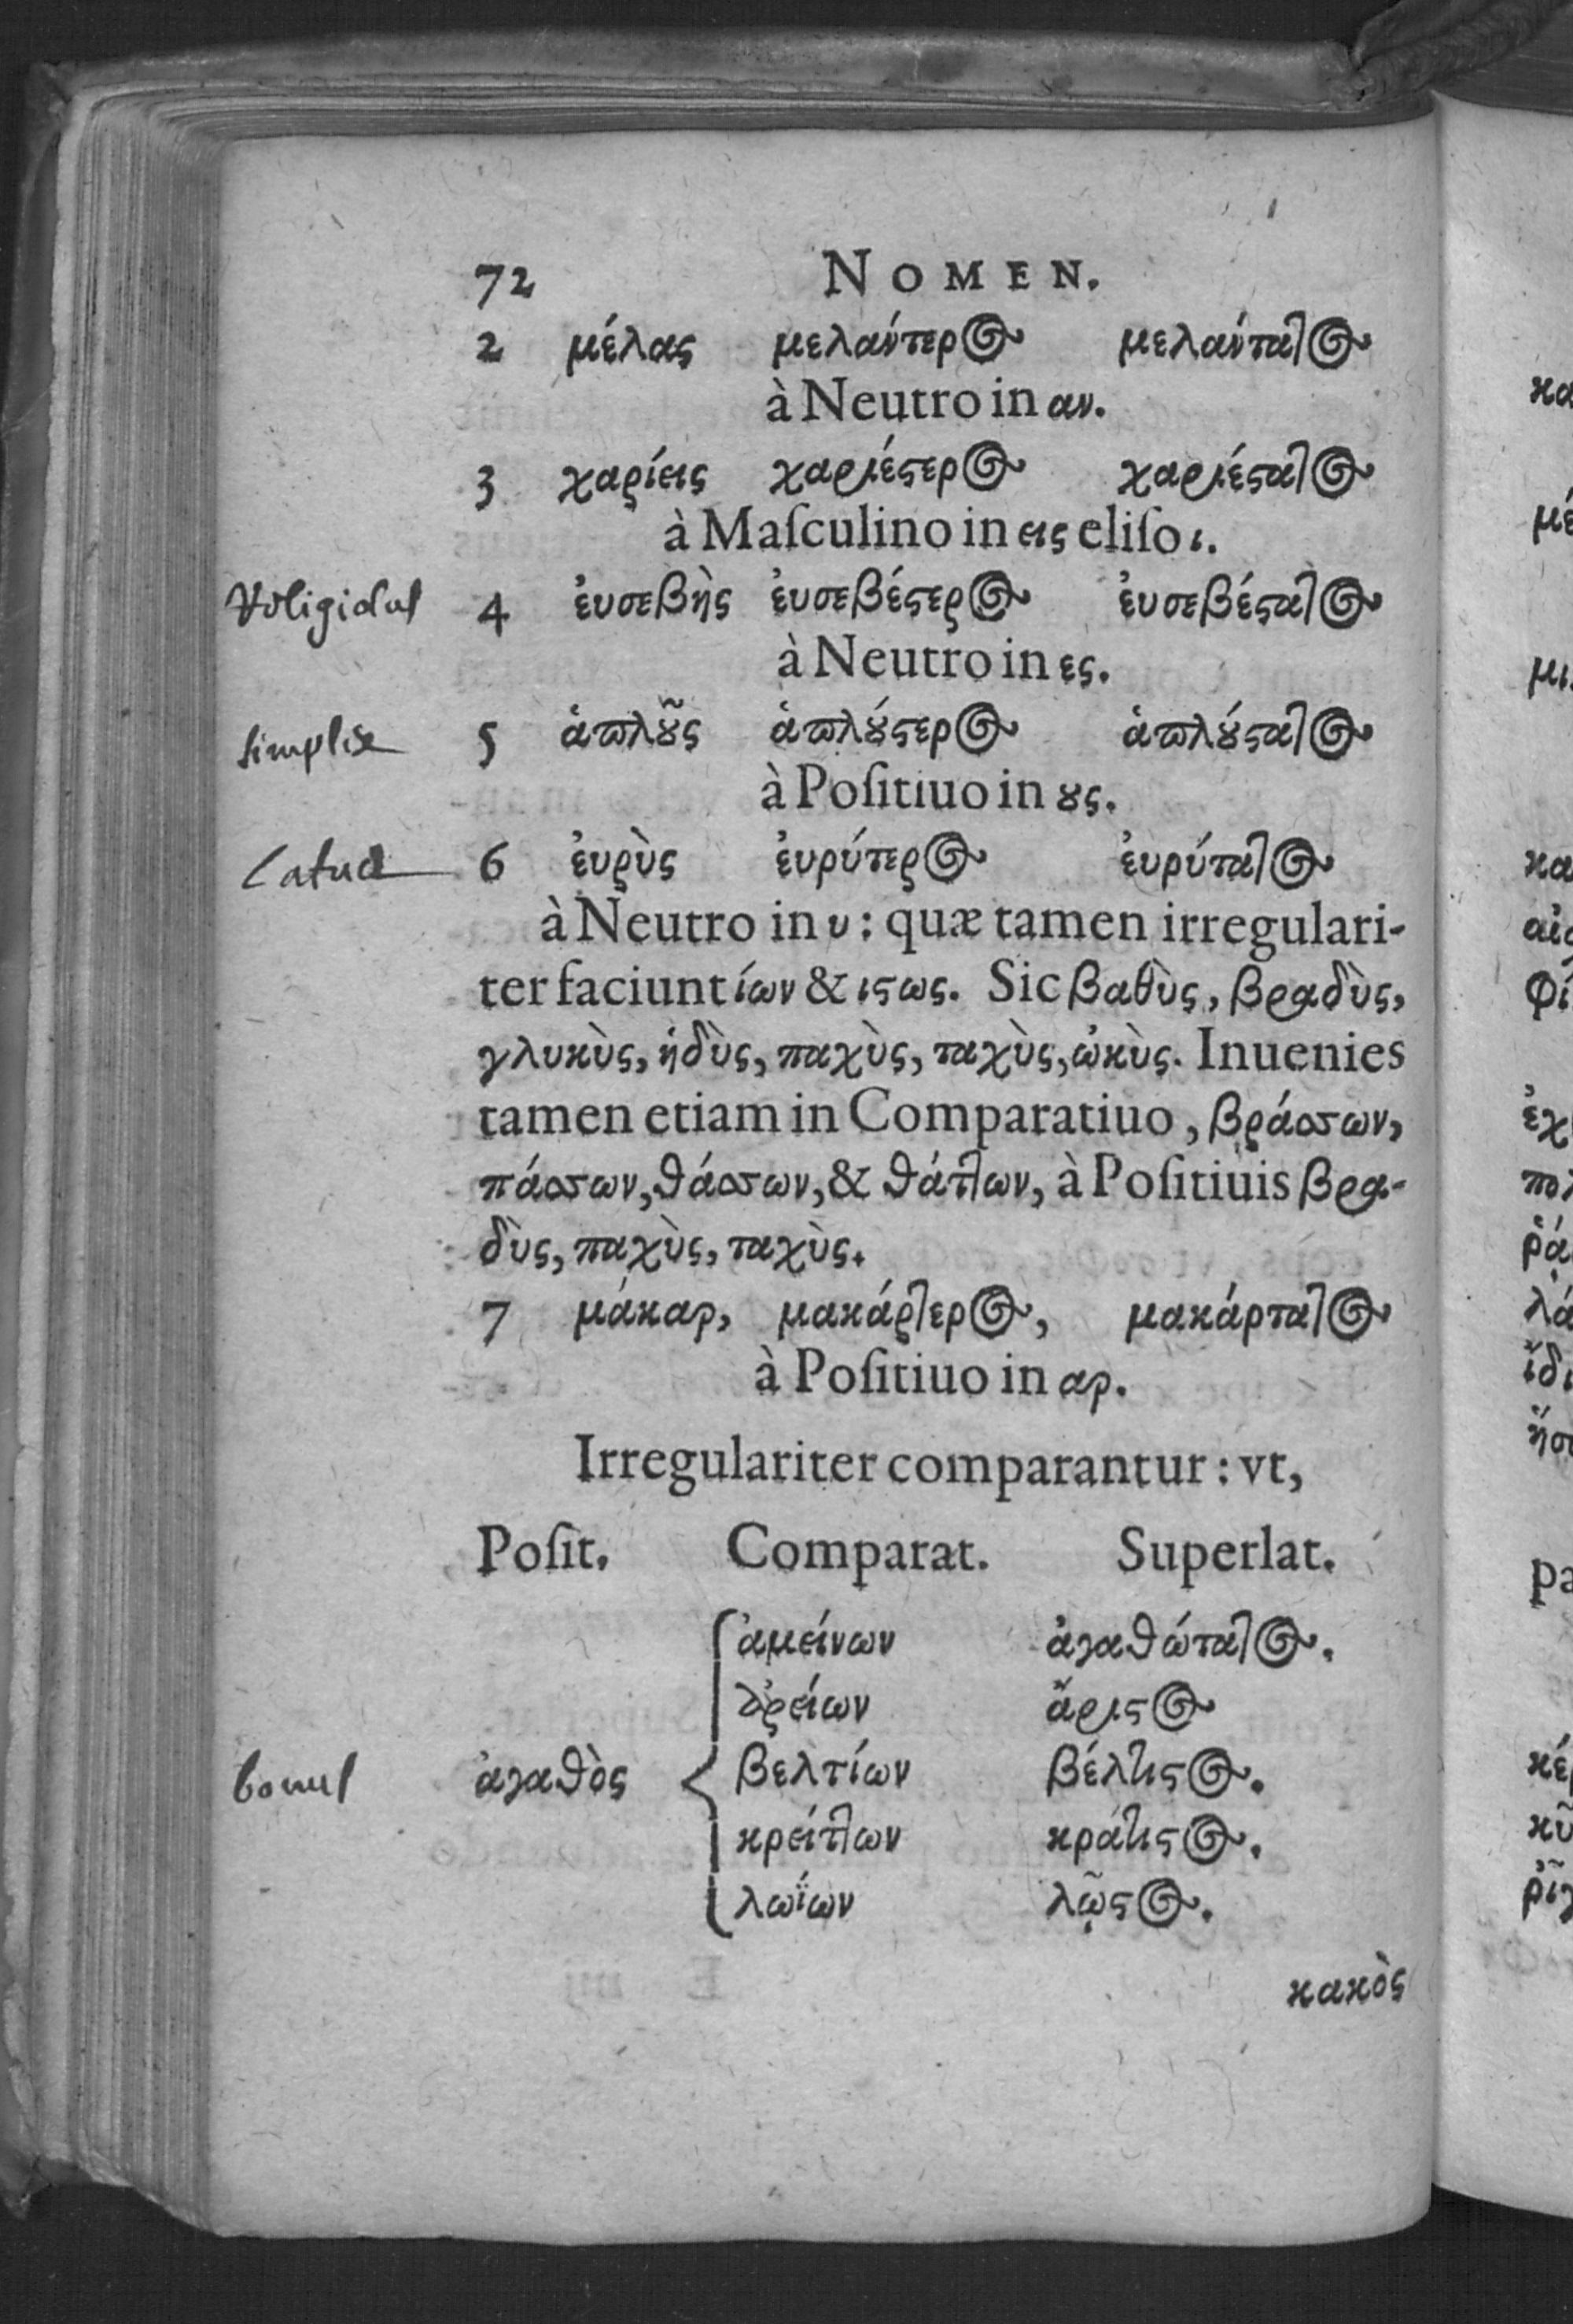 72 NOMEN.
2 μέλας μελάντερος μελάντατος
à Neutro in αν.
3 χαρίεις χαριέστερος χαριέστατος
à Maſculino in εις eliſo ι.
Religiosus 4 ἐυσεβὴς ἐυσεβέστερος ἐυσεβέστατος
à Neutro in ες.
simplex 5 ἁπλοῦς ἁπλούστερος ἁπλούστατος
à Poſitiuo in ους.
Latus 6 ἐυρὺς ἐυρύτερος ἐυρύτατος
à Neutro in υ: quæ tamen irregulari-
ter faciunt ίων & ιστως. Sic βαθὺς, βραδὺς,
γλυκὺς, ἡδὺς, παχὺς, ταχὺς, ὠκὺς. Inuenies
tamen etiam in Comparatiuo, βράσσων,
πάσσων, θάσσων, & θάττων, à Poſitiuis βρα-
δὺς, παχὺς, ταχὺς.
7 μάκαρ, μακάρτερος, μακάρτατος
à Poſitiuo in αρ.
Irregulariter comparantur: vt,
Poſit. Comparat. Superlat.
ἀμείνων ἀγαθώτατος.
ἀρείων ἄριστος
bonus ἀγαθὸς βελτίων βέλτιστος.
κρείττων κράτιστος.
λωΐων λῷστος.
κακὸς